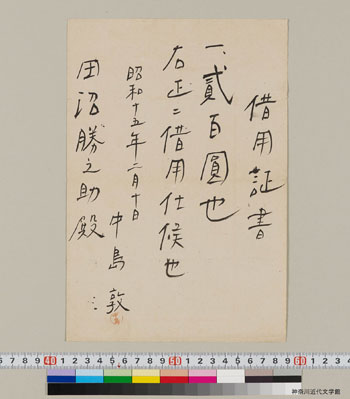 借用証書
一、貳百圓也
右正ニ借用仕候也
昭和十五年二月十日
中島敦
田沼勝之助殿
6 7 8 9 40 1 2 3 4 5 6 7 8 9 50 1 2 3 4 5 6 7 8 9 60 1 2 3
神奈川近代文学館